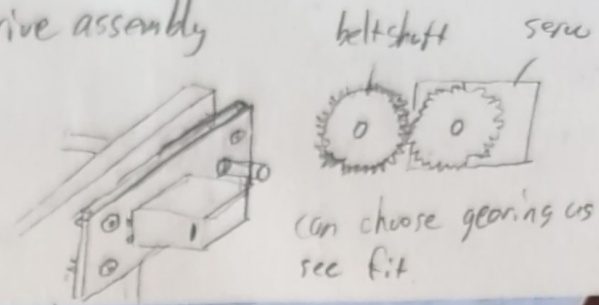 rive assembly
beltshaft
servo
can choose gearing as
see fit